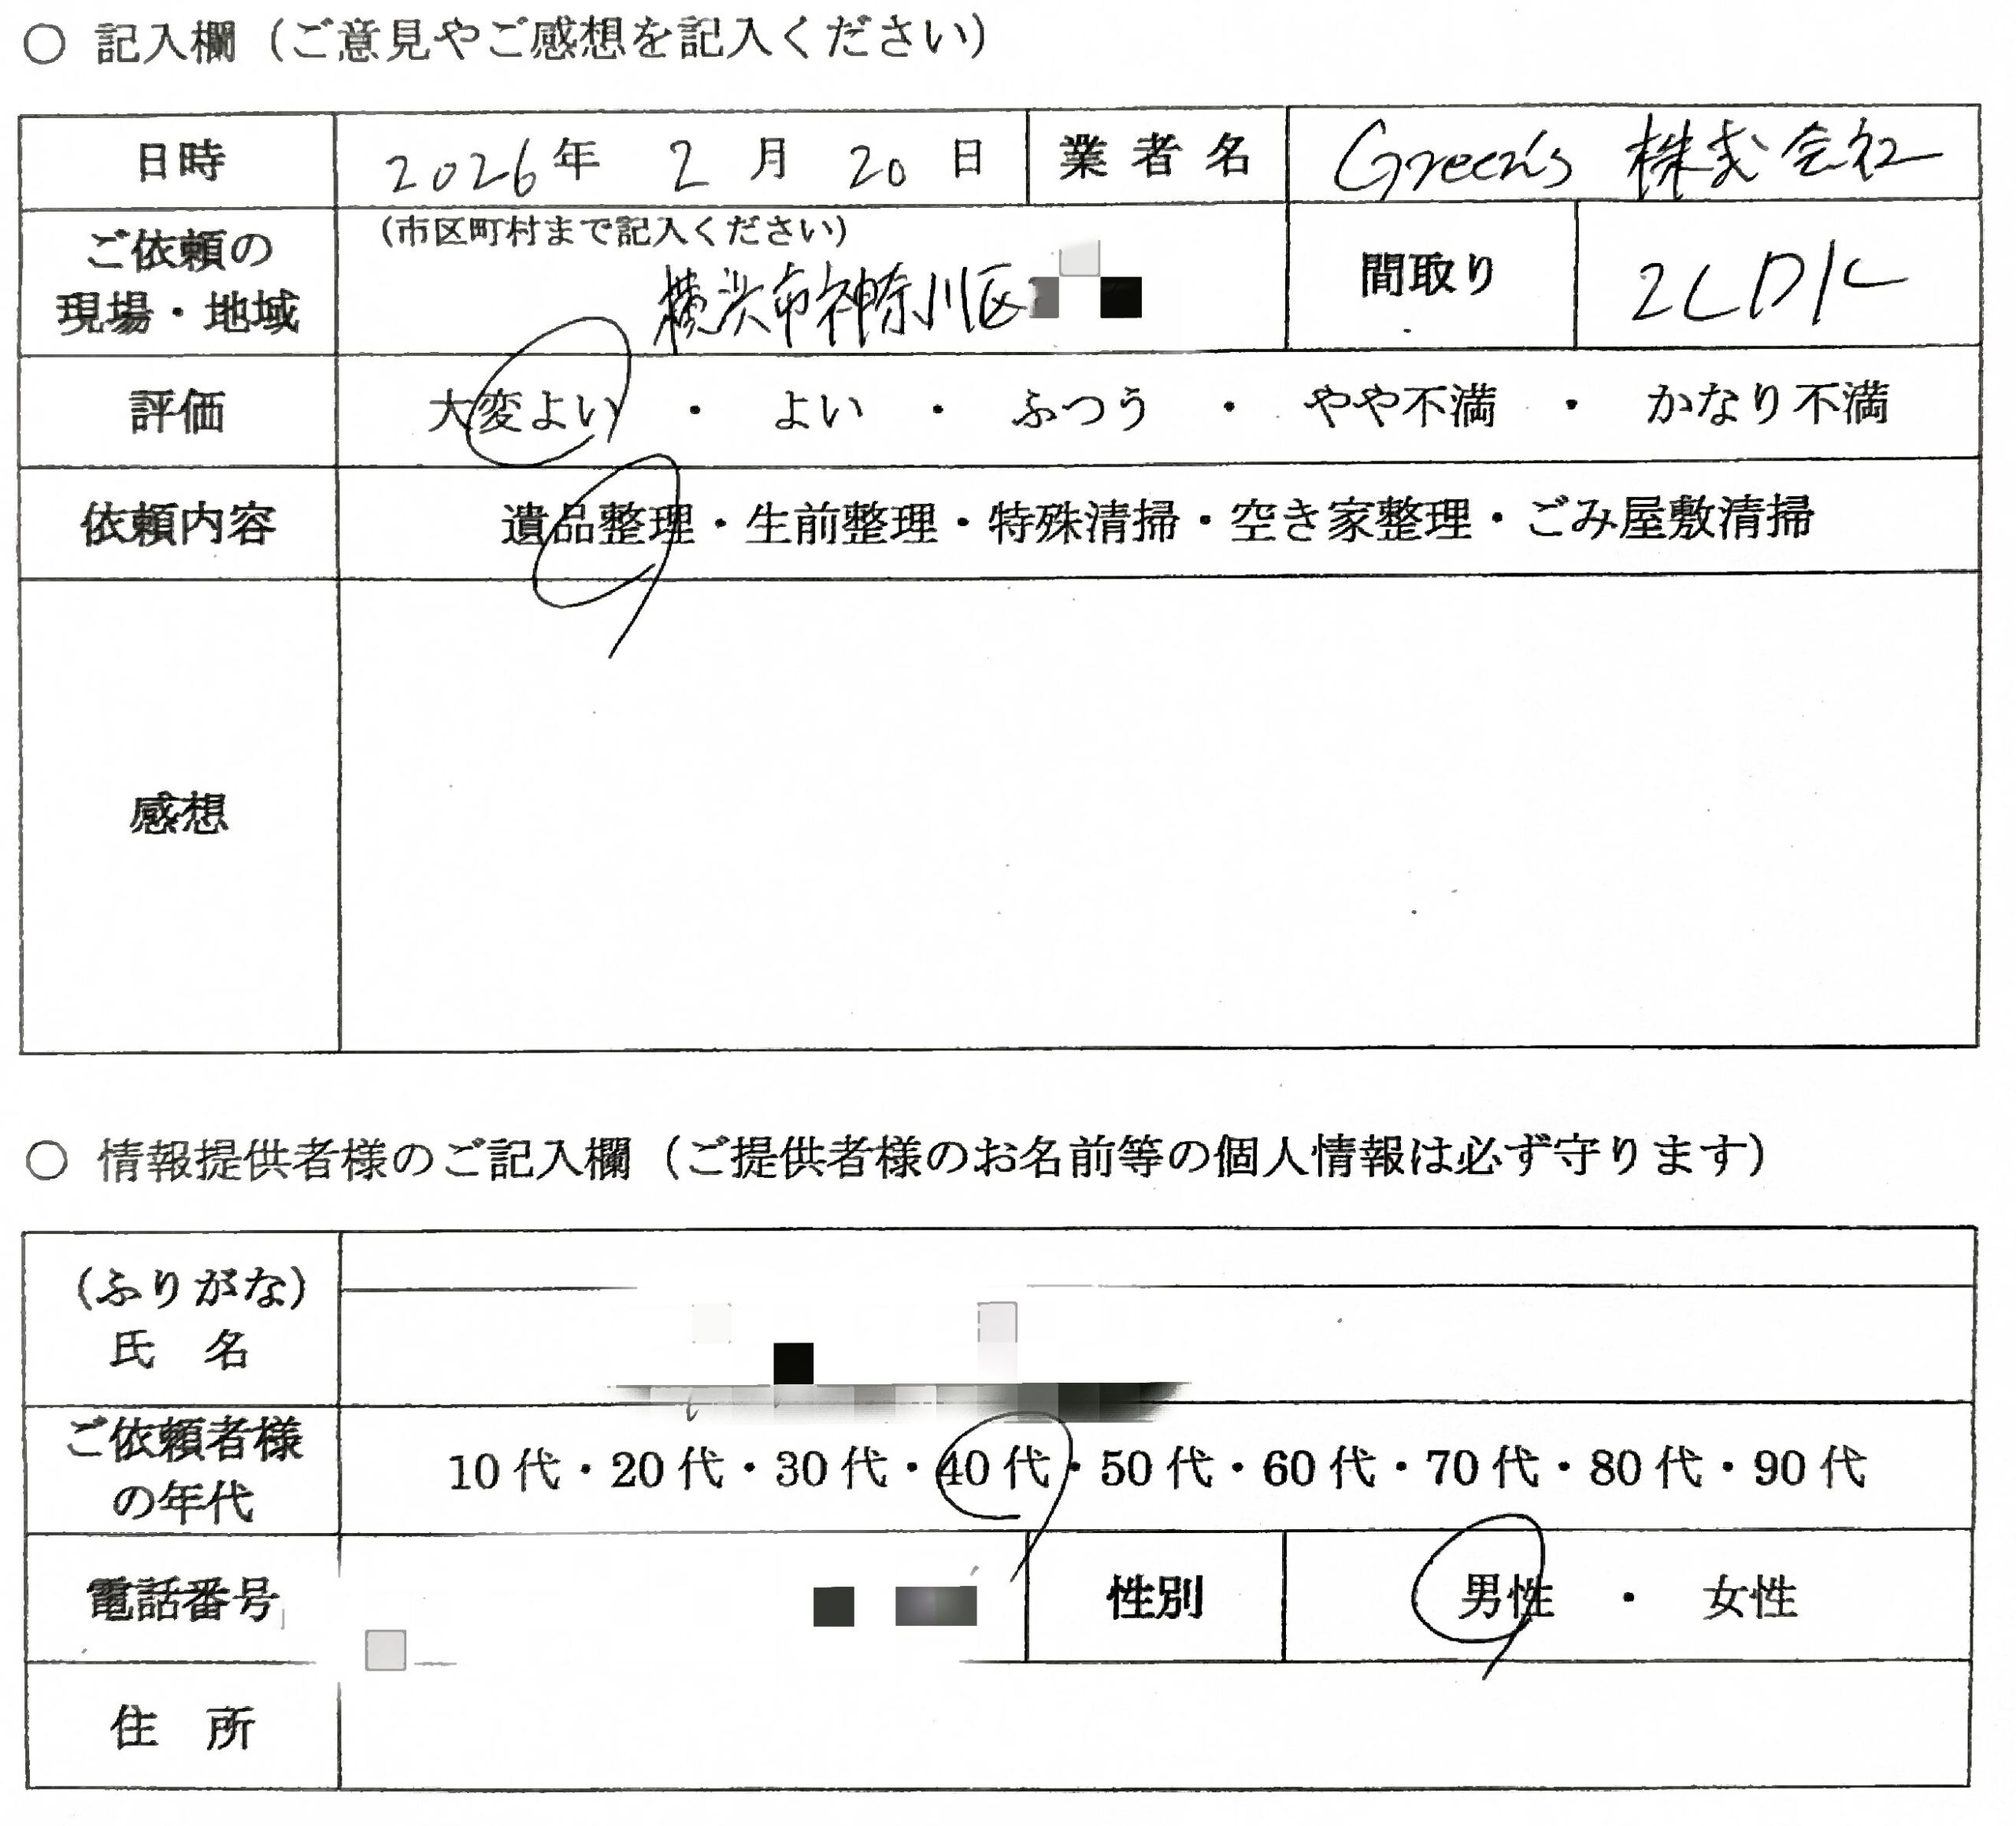 ○ 記入欄（ご意見やご感想を記入ください）
日時 2026年 2月 20日 業者名 Green's 株式会社
ご依頼の現場・地域 （市区町村まで記入ください）
横浜市神奈川区 間取り 2LDK
評価 大変よい ・ よい ・ ふつう ・ やや不満 ・ かなり不満
依頼内容 遺品整理・生前整理・特殊清掃・空き家整理・ごみ屋敷清掃
感想
○ 情報提供者様のご記入欄（ご提供者様のお名前等の個人情報は必ず守ります）
（ふりがな）
氏 名
ご依頼者様の年代 10代・20代・30代・40代・50代・60代・70代・80代・90代
電話番号 性別 男性 ・ 女性
住 所